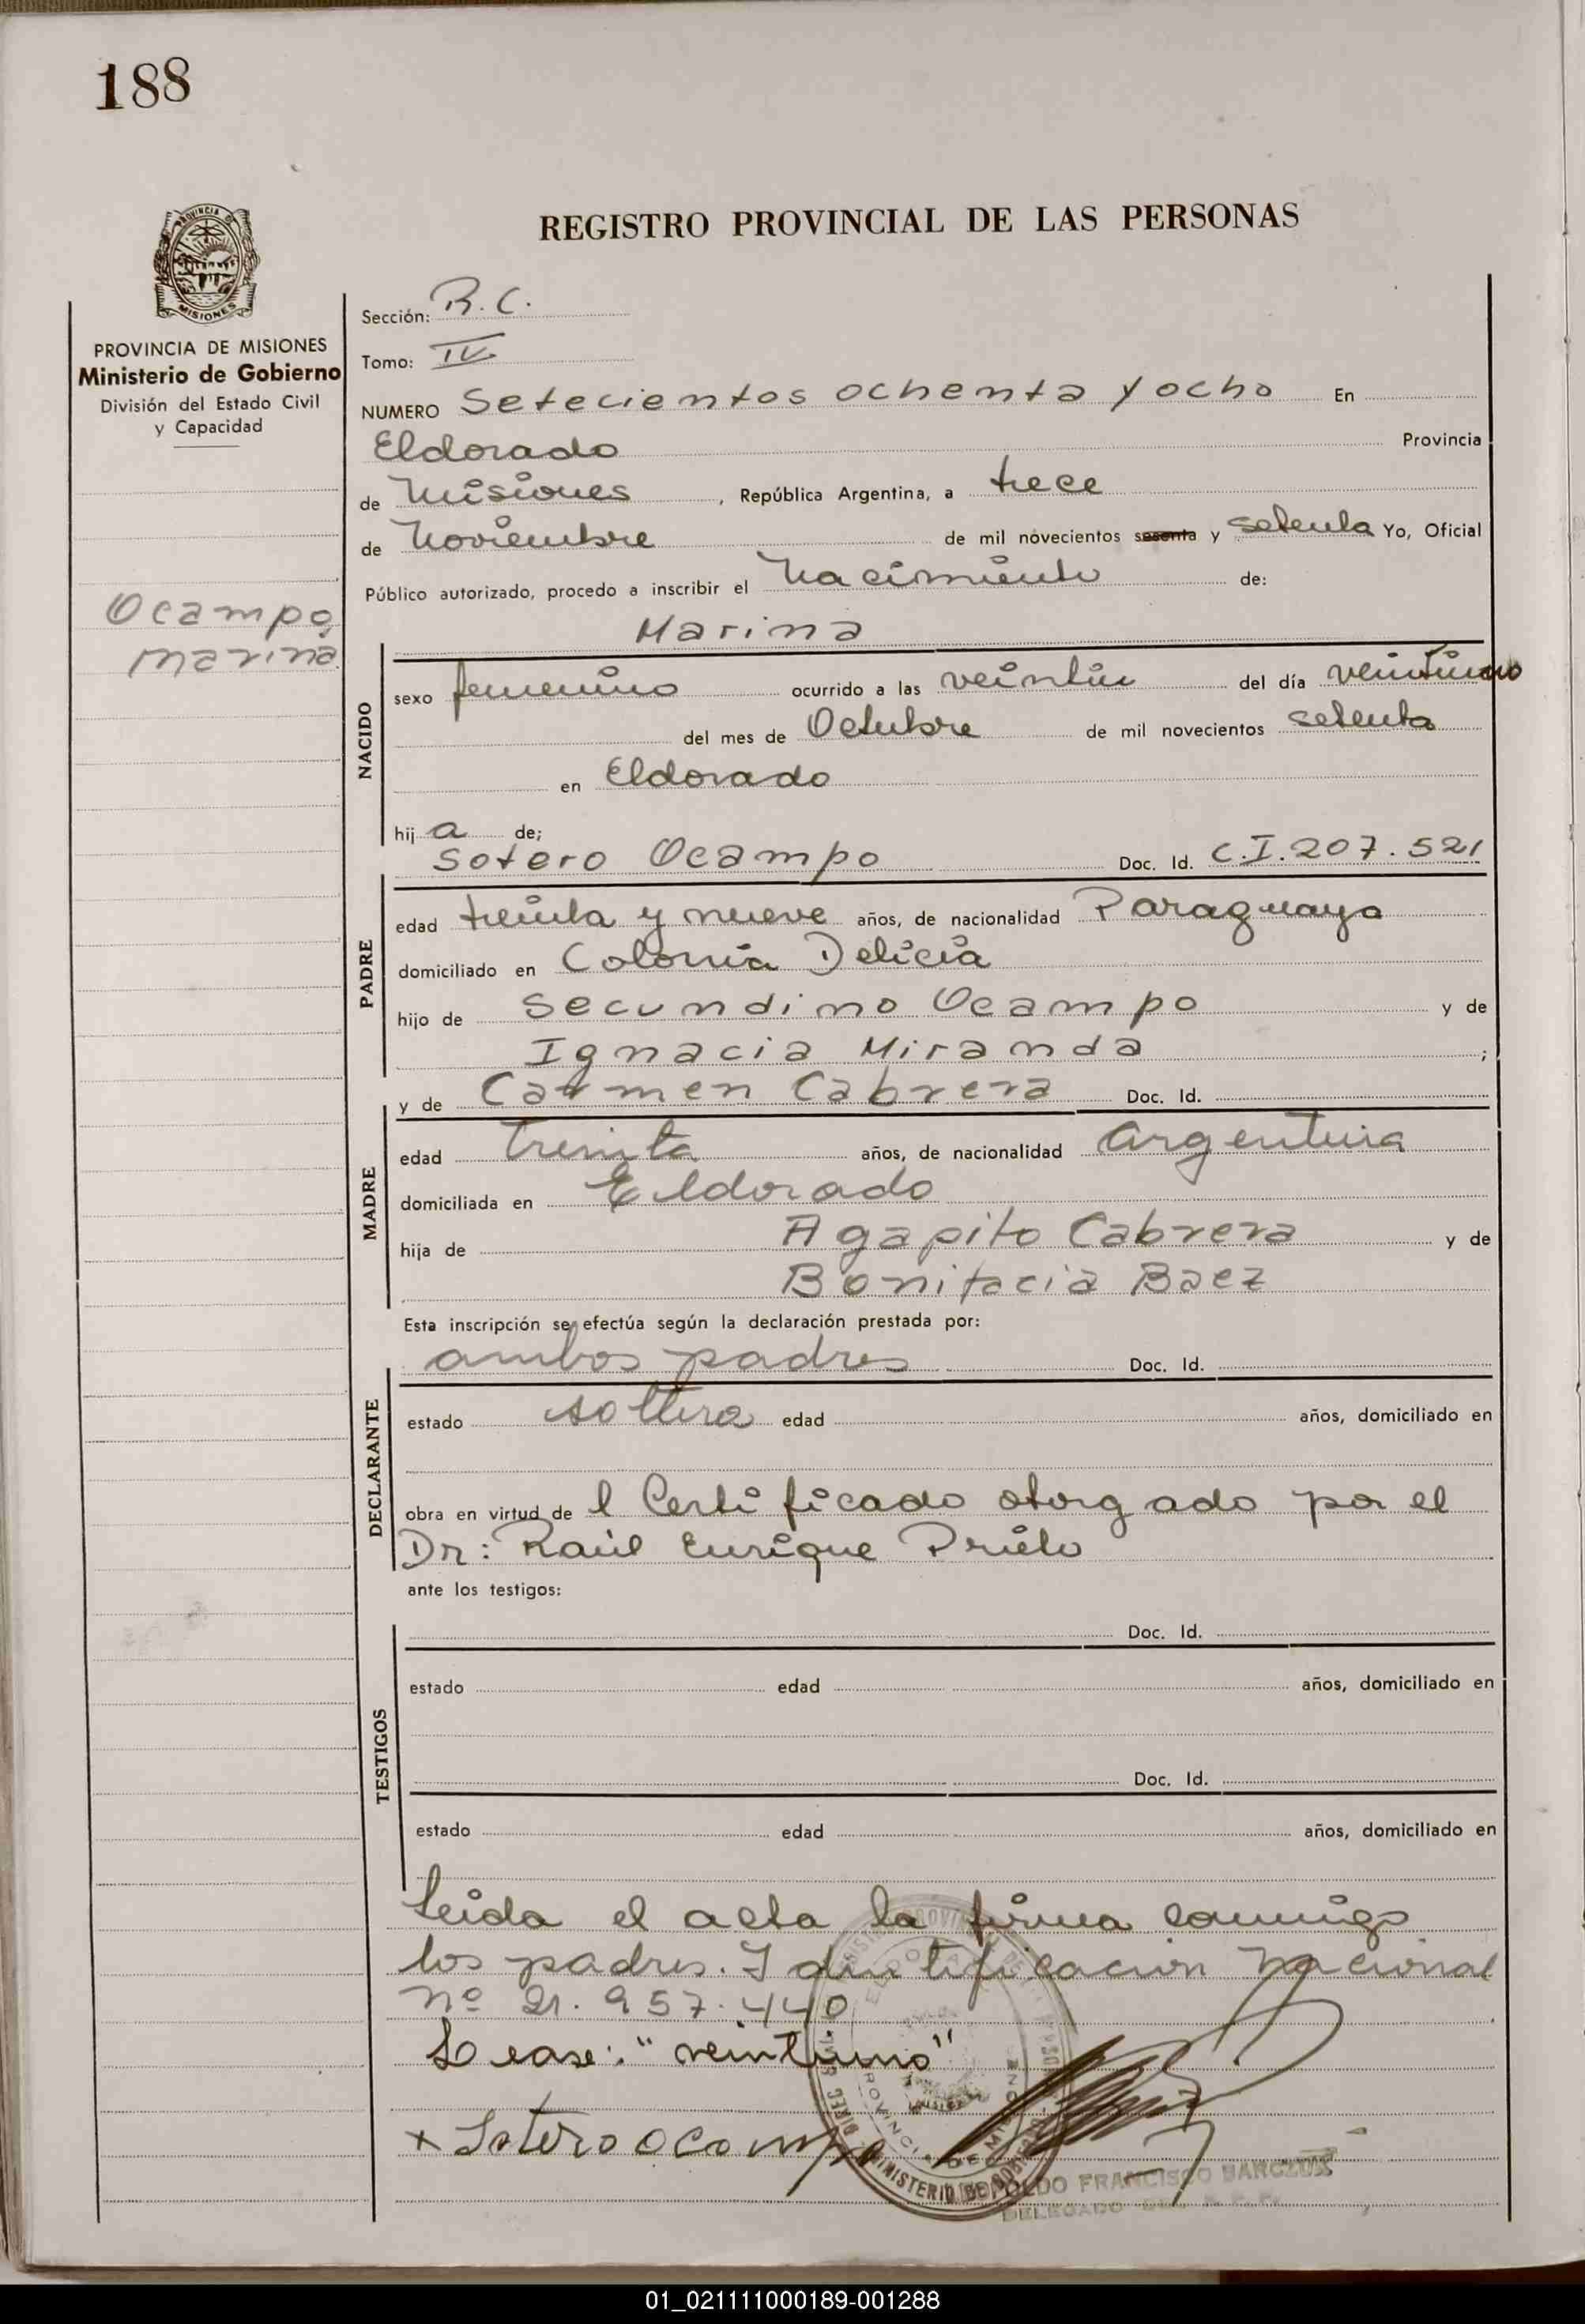 188
PROVINCIA DE
MISIONES
PROVINCIA DE MISIONES
Ministerio de Gobierno
División del Estado Civil
y Capacidad
Ocampo,
Marina
REGISTRO PROVINCIAL DE LAS PERSONAS
Sección: R.C.
Tomo: IV
NUMERO Setecientos ochenta y ocho En
Eldorado Provincia
de Misiones, República Argentina, a trece
de Noviembre de mil novecientos sesenta y setenta Yo, Oficial
Público autorizado, procedo a inscribir el Nacimiento de:
Marina
NACIDO
sexo femenino ocurrido a las veintiún del día veintiuno
del mes de Octubre de mil novecientos setenta
en Eldorado
hija de;
Sotero Ocampo Doc. Id. C.I. 207.521
PADRE
edad treinta y nueve años, de nacionalidad Paraguaya
domiciliado en Colonia Delicia
hijo de Secundino Ocampo y de
Ignacia Miranda ;
y de Carmen Cabrera Doc. Id.
MADRE
edad treinta años, de nacionalidad argentina
domiciliada en Eldorado
hija de Agapito Cabrera y de
Bonifacia Baez
Esta inscripción se efectúa según la declaración prestada por:
ambos padres Doc. Id.
DECLARANTE
estado soltera edad años, domiciliado en
obra en virtud de l Certificado otorgado por el
Dr: Raúl Enrique Prieto
ante los testigos:
Doc. Id.
TESTIGOS
estado edad años, domiciliado en
Doc. Id.
estado edad años, domiciliado en
Leida el acta la firma conmigo
los padres. Identificacion Nacional
Nº 21.957.440
Lease: "veintiuno"
x Sotero Ocampo
MINISTERIO DE GOBIERNO
LEOPOLDO FRANCISCO
DELEGADO
01_021111000189-001288